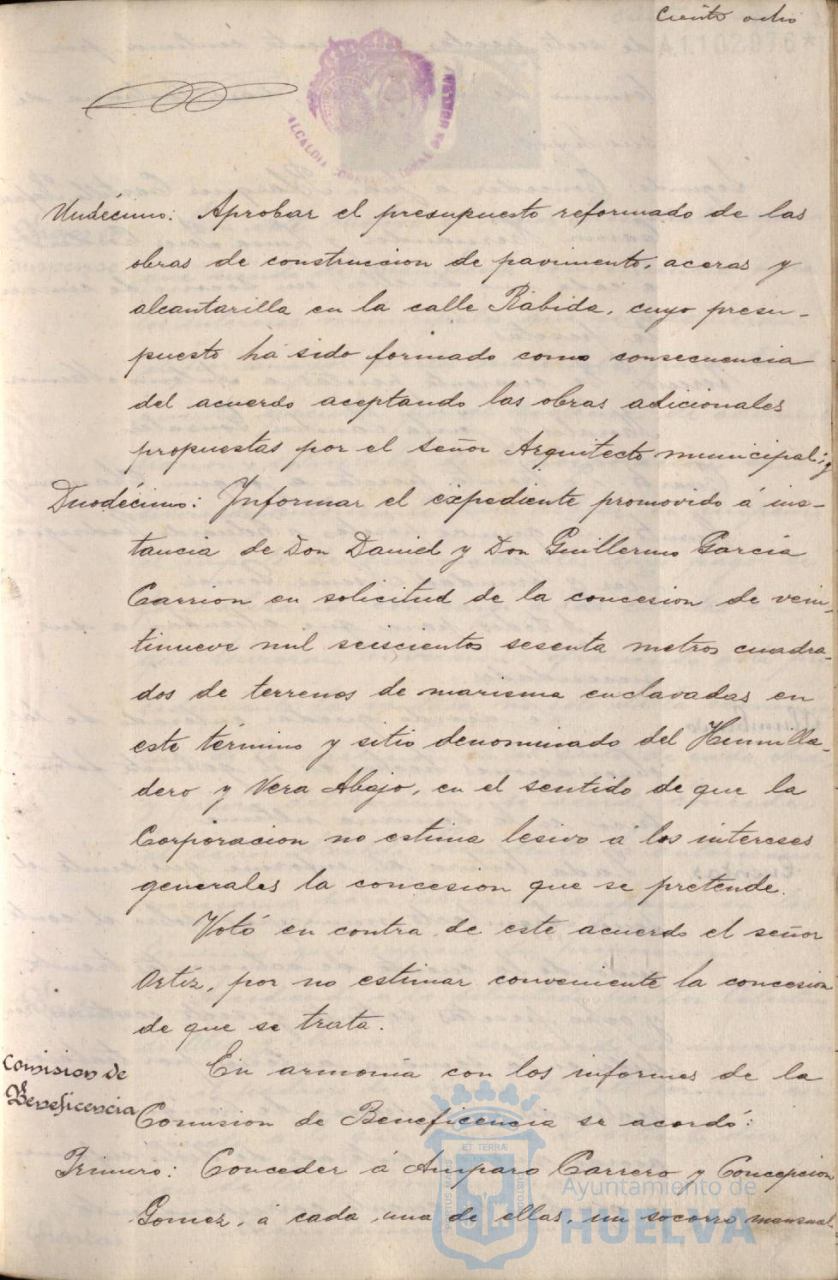 Ciento ocho
A1102916*
ALCALDIA CONSTITUCIONAL DE HUELVA
Undécimo: Aprobar el presupuesto reformado de las
obras de construccion de pavimento, aceras y
alcantarilla en la calle Rábida, cuyo presu-
puesto há sido formado como consecuencia
del acuerdo aceptando las obras adicionales
propuestas por el señor Arquitecto municipal; y
Duodécimo: Informar el expediente promovido á ins-
tancia de Don Daniel y Don Guillermo García
Carrion en solicitud de la concesion de vein-
tinueve mil seiscientos sesenta metros cuadra-
dos de terrenos de marisma enclavadas en
este término y sitio denominado del Humilla-
dero y Vera Abajo, en el sentido de que la
Corporacion no estima lesivo á los intereses
generales la concesion que se pretende.
Votó en contra de este acuerdo el señor
Ortíz, por no estimar conveniente la concesion
de que se trata.
Comision de
Beneficencia
En armonía con los informes de la
Comision de Beneficencia se acordó:
Primero: Conceder á Amparo Carrero y Concepcion
Gomez, á cada una de ellas, un socorro mensual
Ayuntamiento de
HUELVA